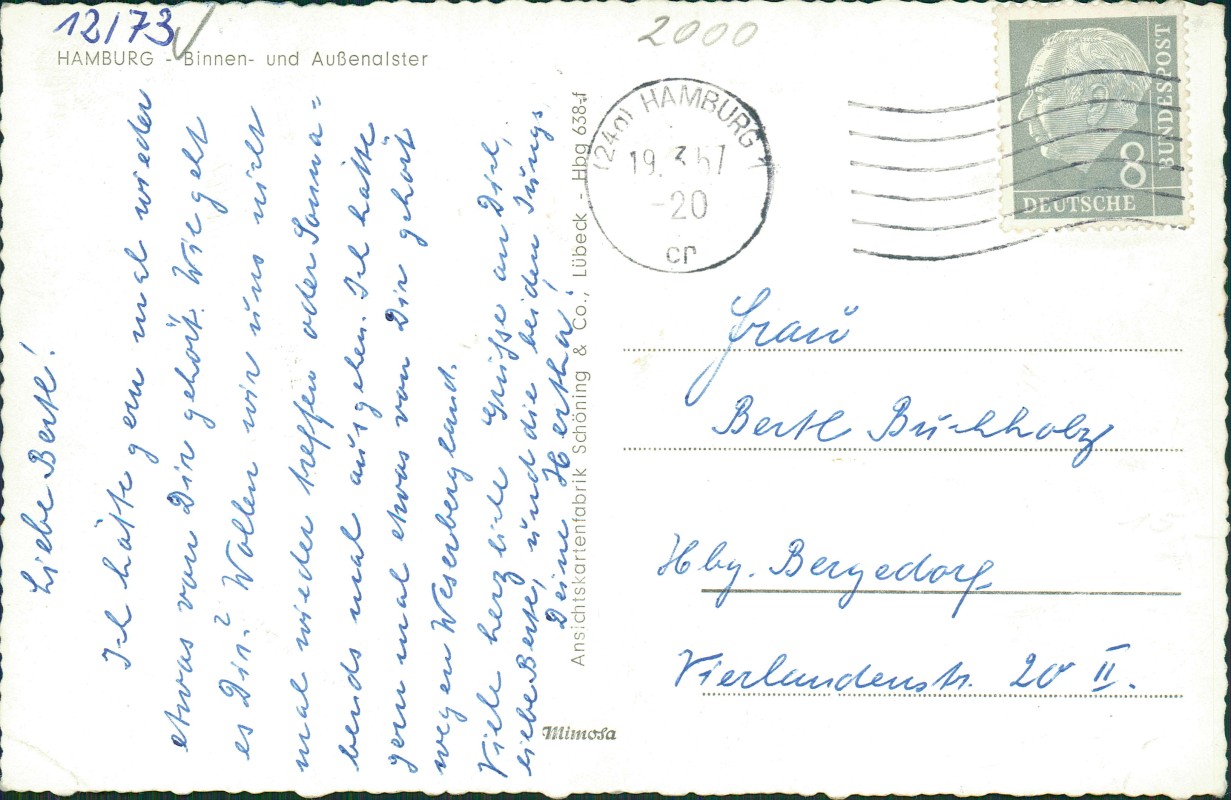 12/73
HAMBURG - Binnen- und Außenalster
2000
(24a) HAMBURG 1
19.3.57
-20
cr
DEUTSCHE
BUNDESPOST
8
Liebe Bertl!
Ich hätte gern mal wieder
etwas von Dir gehört. Wie geht
es Dir? Wollen wir uns nicht
mal wieder treffen oder Sonna=
bends mal ausgehen. Ich hätte
gern mal etwas von Dir gehört
wegen Weserbergland.
Viele herzliche Grüße an Dich,
liebe Bertl, und die beiden Jungs
Deine Hertha!
Ansichtskartenfabrik Schöning & Co., Lübeck - Hbg 638-f
Mimosa
Frau
Bertl Buchholz
Hbg. Bergedorf
Vierlandenstr. 20 II.